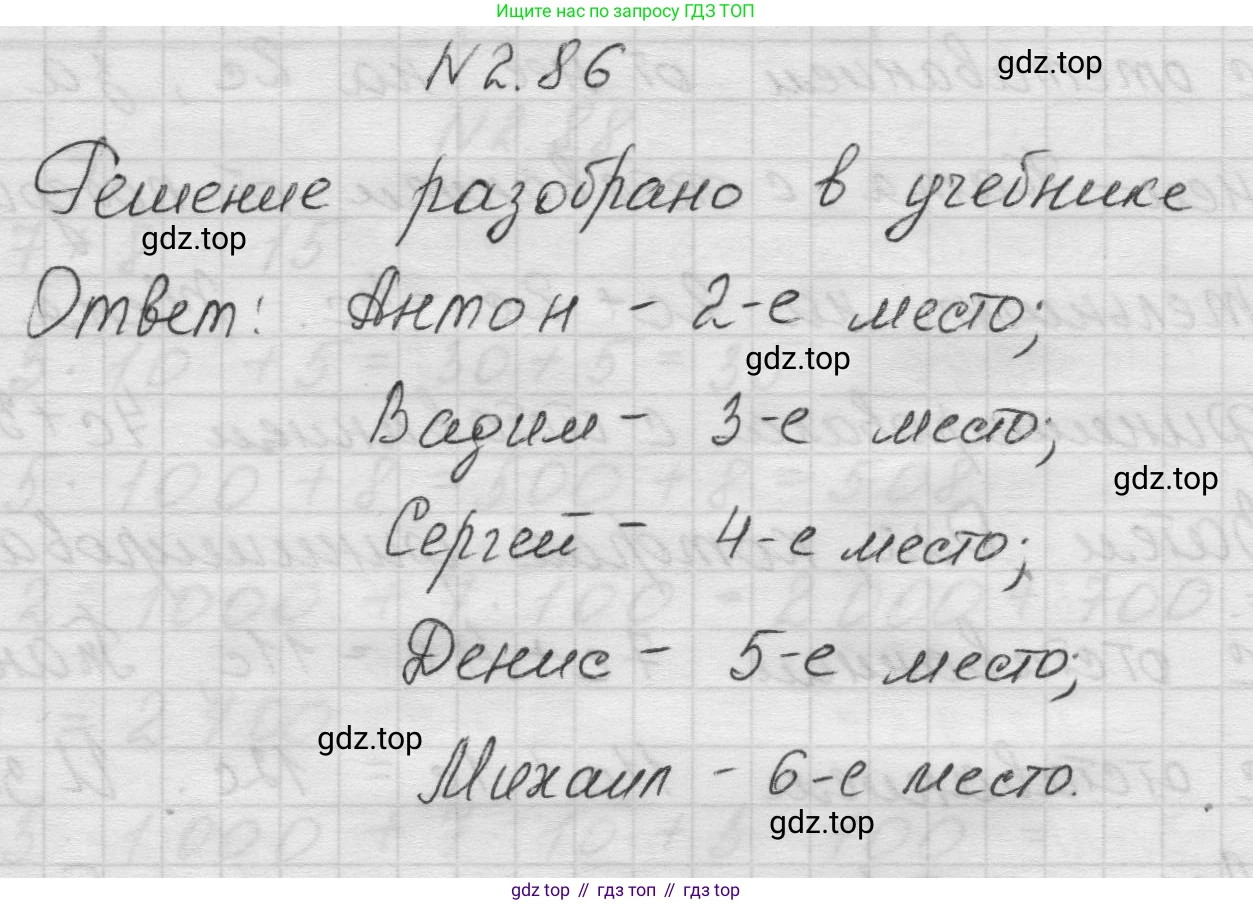 Ищите нас по запросу ГДЗ ТОП
N 2.86
gdz.top
Решение разобрано в учебнике
gdz.top
Ответ: Антон - 2-е место;
gdz.top
Вадим - 3-е место;
gdz.top
Сергей - 4-е место;
Денис - 5-е место;
gdz.top
Михаил - 6-е место.
gdz.top
gdz top // гдз топ // gdz top